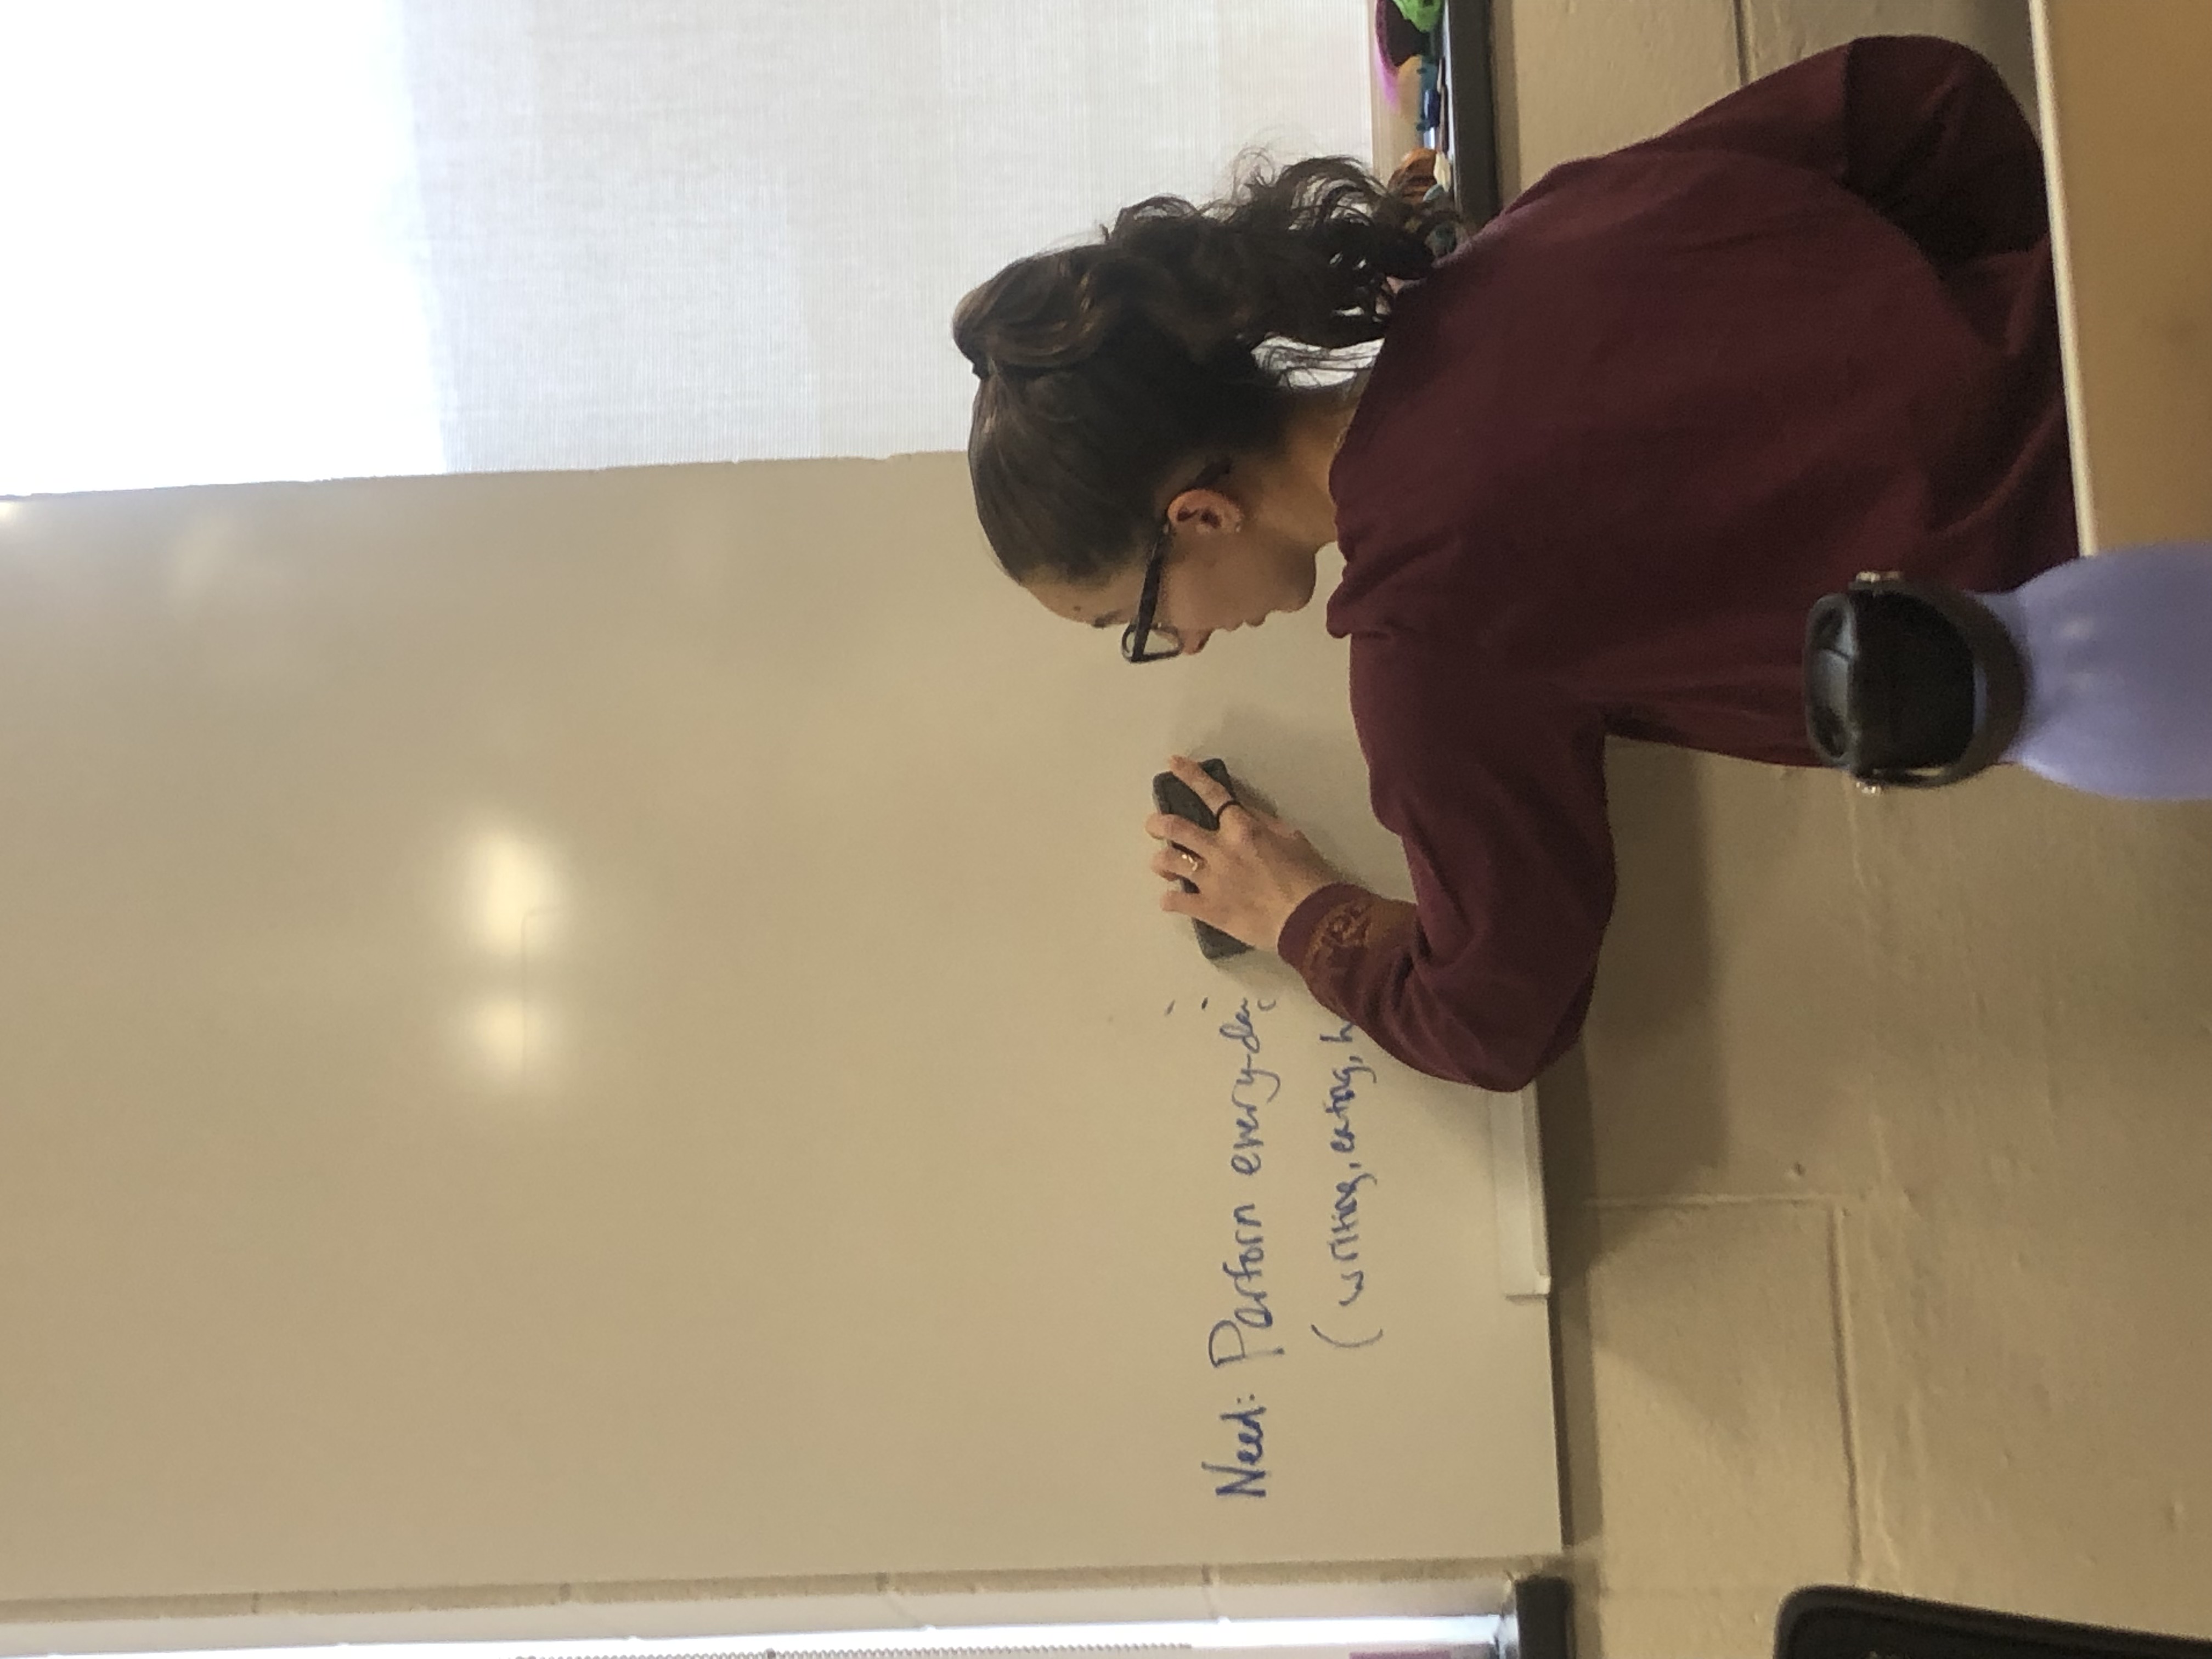 Need: Perform every-day
(writing, eating, h